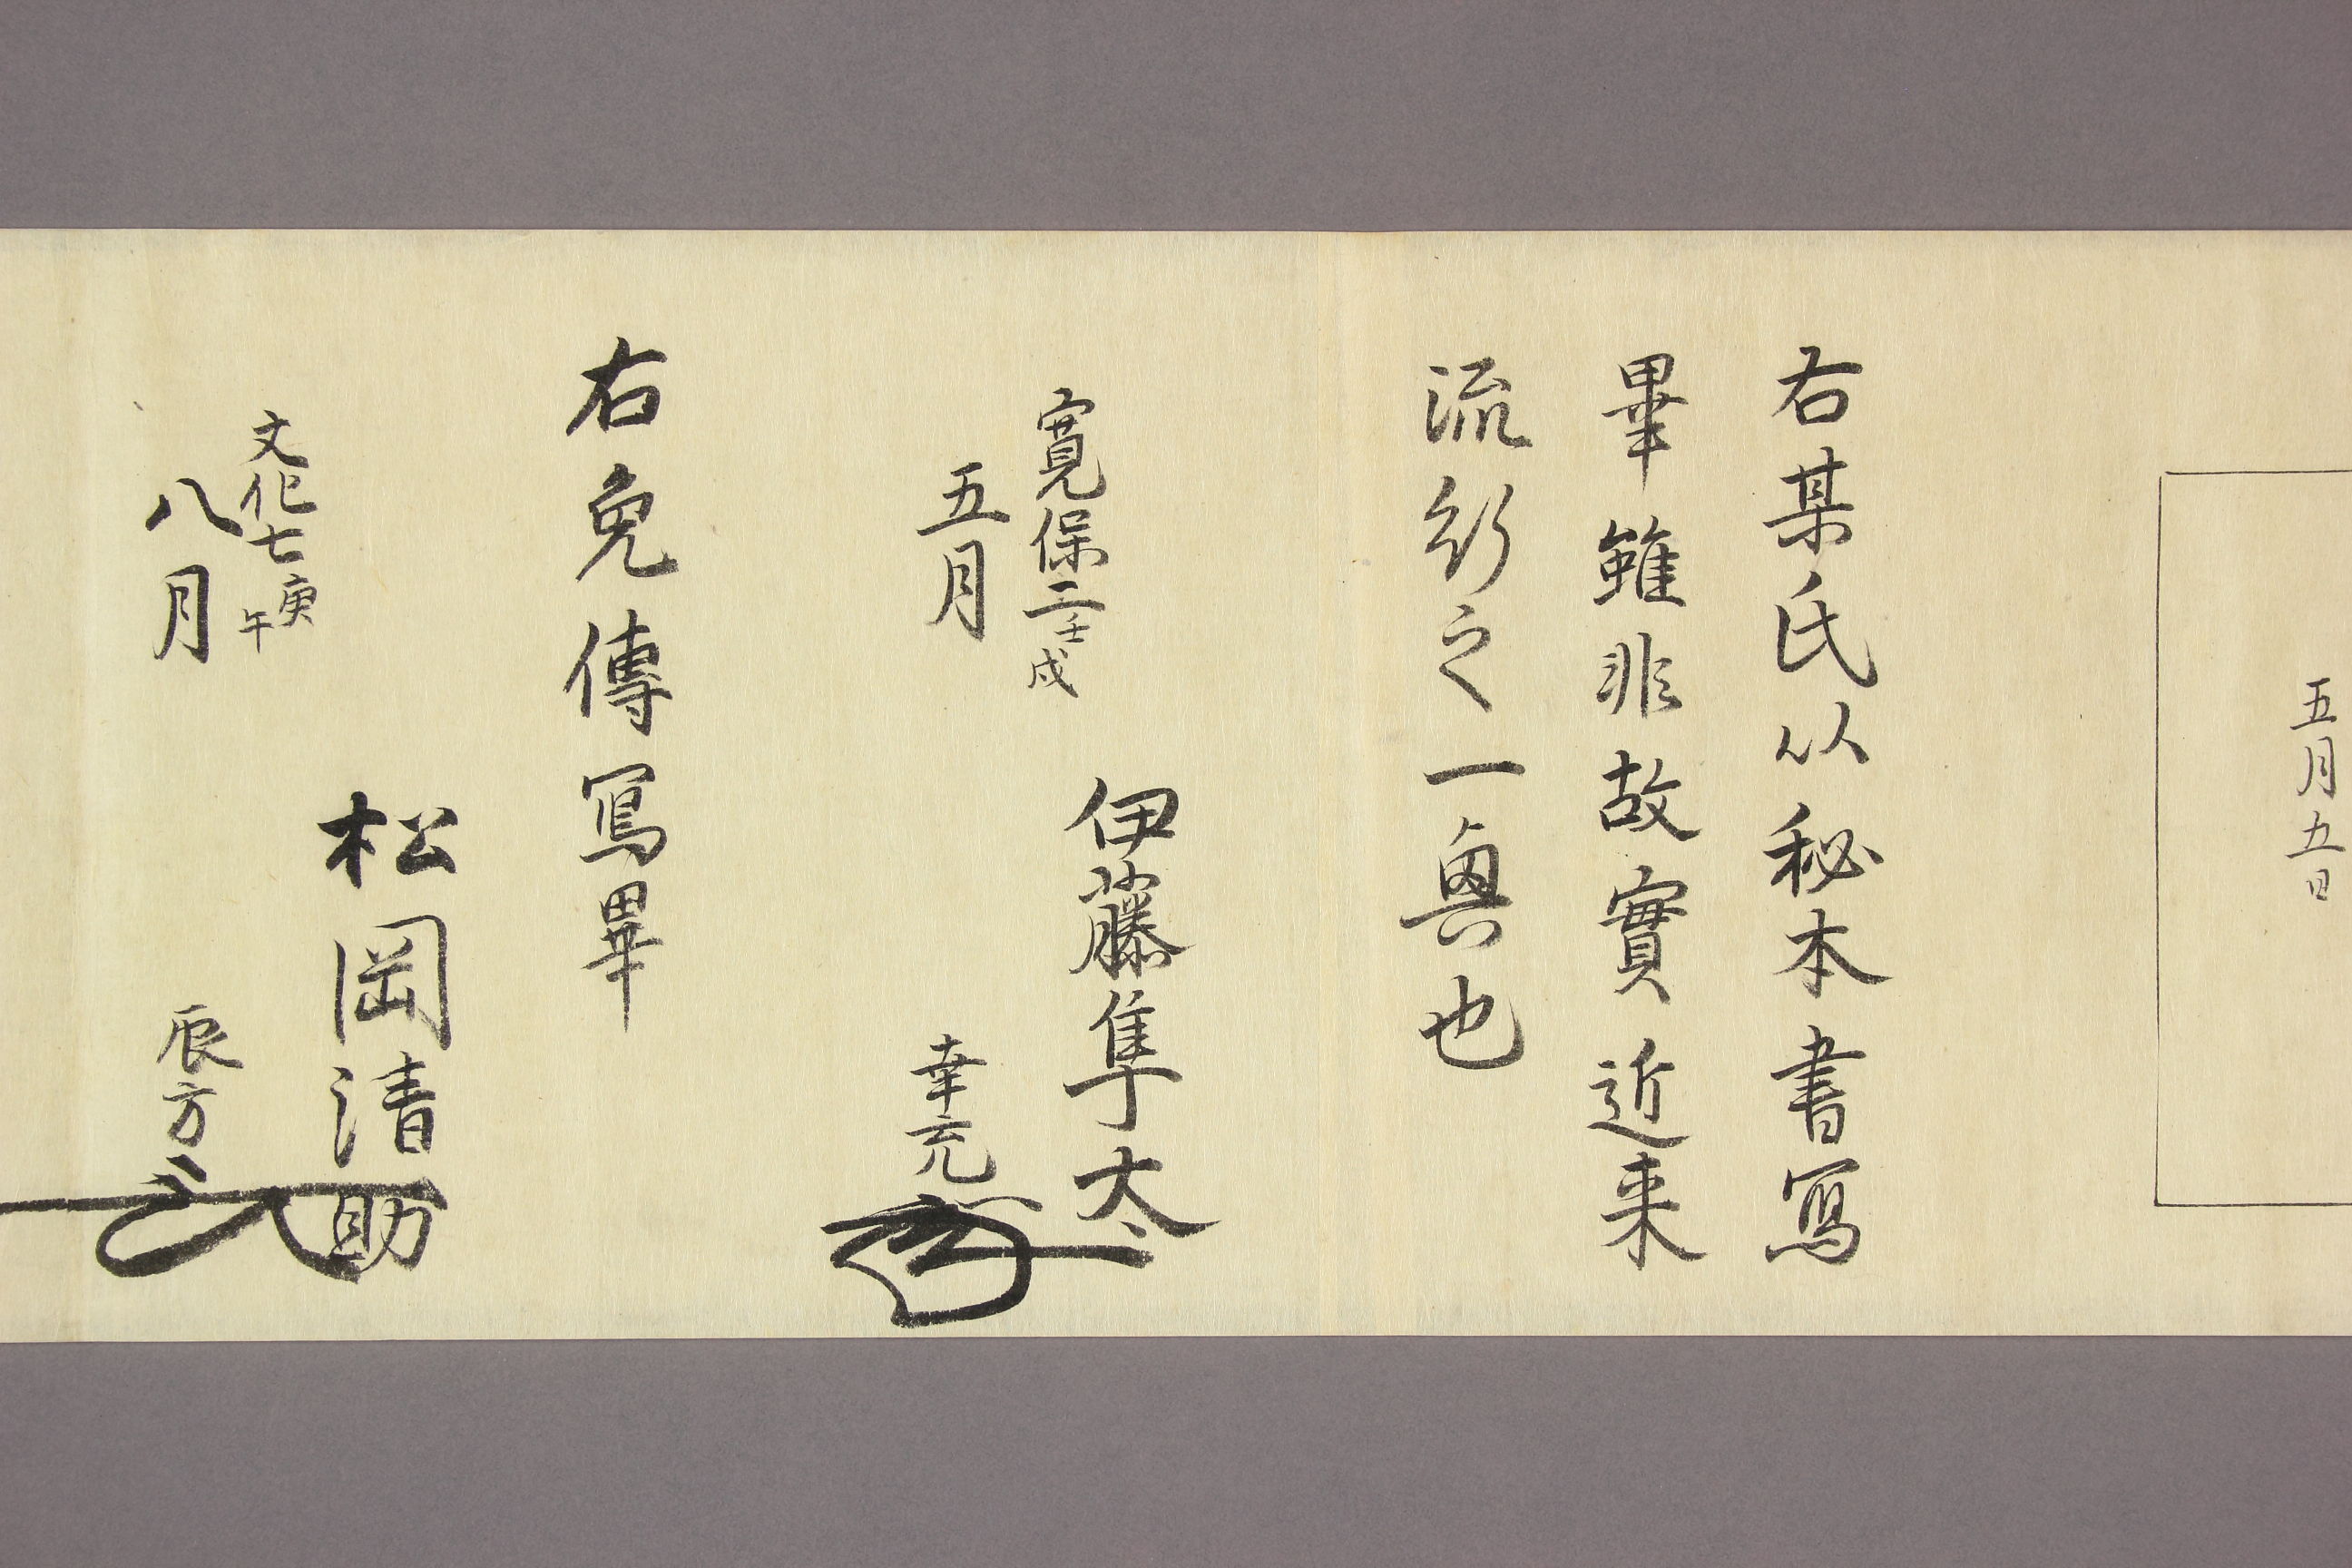 五月五日
右某氏以秘本書寫
畢雖非故實近来
流行之一興也
寛保二壬戌
五月
伊藤隼太
幸充
右免傳寫畢
文化七庚午
八月
松岡清助
辰方